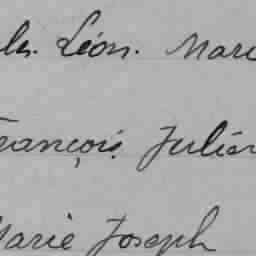 Léon. Mari
François Julien
Marie Joseph